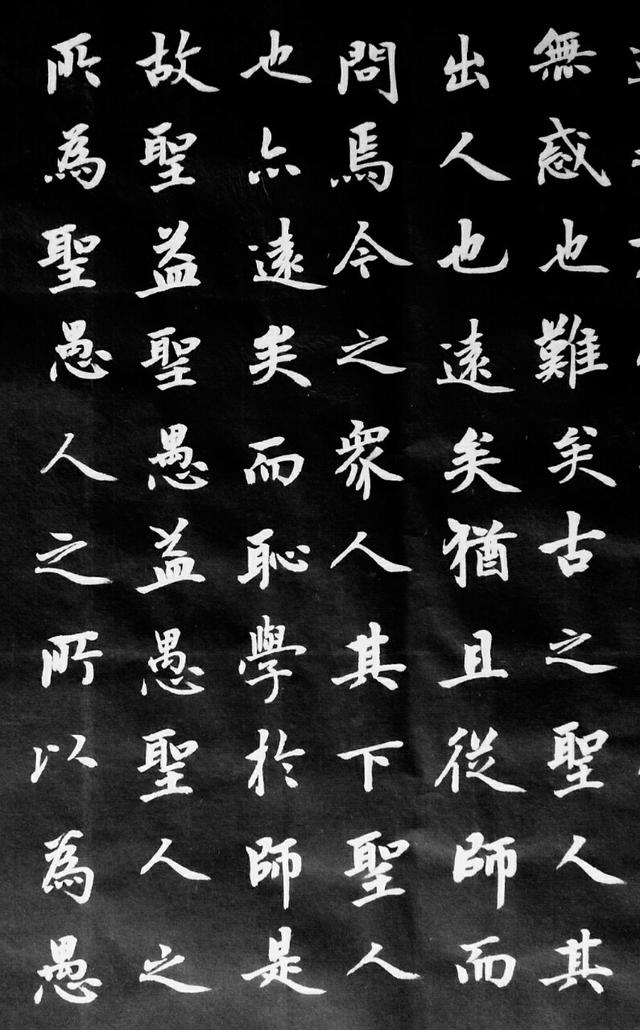 無惑也難矣古之聖人其
出人也遠矣猶且從師而
問焉今之衆人其下聖人
也亦遠矣而恥學於師是
故聖益聖愚益愚聖人之
所為聖愚人之所以為愚